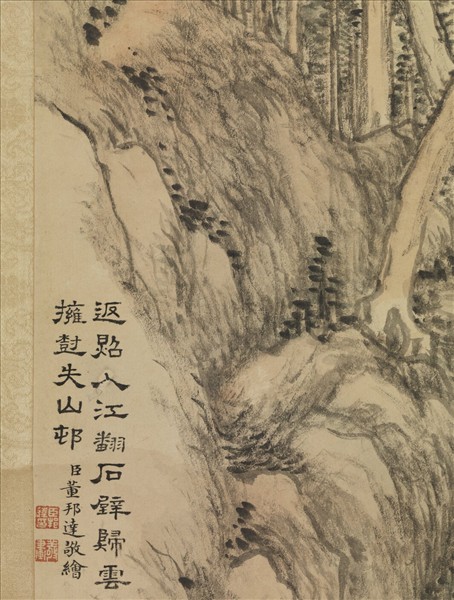 返照入江翻石壁歸雲
擁尌失山邨
臣董邦達敬繪